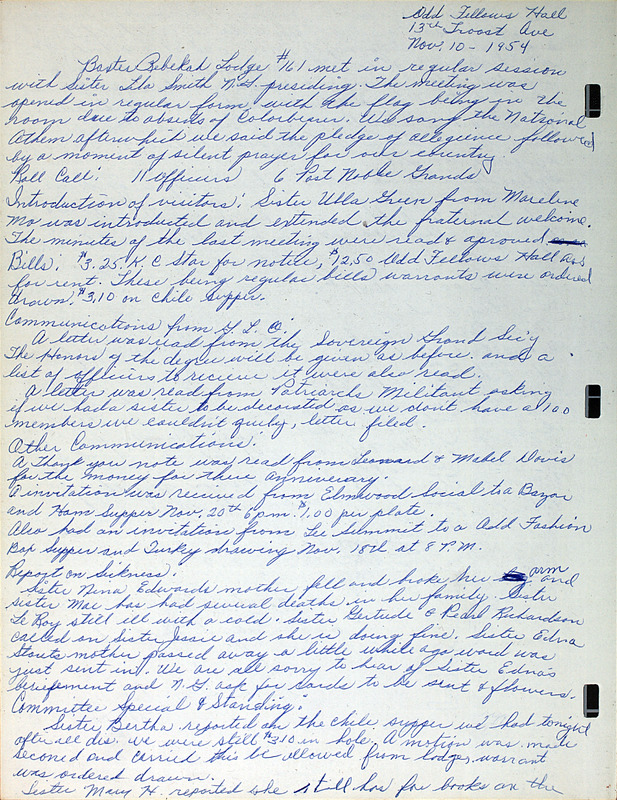 Odd Fellows Hall
13th Troost Ave
Nov. 10 - 1954
Baxter Rebekah Lodge #161 met in regular session
with Sister Lila Smith N.G. presiding. The meeting was
opened in regular form, with the flag being in the
room due to absents of Colorbearer. We sang the National
Athem afterwhich we said the pledge of allegience followed
by a moment of silent prayer for our country
Roll Call: 11 Officers 6 Past Noble Grands
Introduction of visitors: Sister Ulla Green from Marceline
Mo was introduced and extended the fraternal welcome.
The minutes of the last meeting were read & aproved
Bills: $3.25 K.C. Star for notice, $12.50 Odd Fellows Hall ass
for rent. These being regular bills warrants were ordered
drawn. $3.10 on Chile supper.
Communications from G. L. O.
A letter was read from the Sovereign Grand Sec'y
The Honors of the degree will be given as before. and a
list of officers to recieve it were also read.
A letter was read from Patriarchs Militant asking
if we had a sister to be decorated as we dont have a 100
members we couldn't quily, letter filed.
Other Communications.
A Thank you note was read from Leonard & Mabel Davis
for the money for there Anniversary.
A invitation was recieved from Elmwood Social to a Bazar
and Ham Supper Nov. 20th 6 p.m. $1.00 per plate.
Also had an invitation from Lee Summit to a Odd Fashion
Box Supper and Turkey drawing Nov. 18th at 8 P.M.
Report on Sickness. arm
Sister Nina Edwards mother fell and broke her and
sister Mae has had several deaths in her family. Sister
Le Roy still ill with a cold. Sister Gertude & Pearl Richardson
called on Sister Jessie and she is doing fine. Sister Edna
Stouts mother passed away a little while ago word was
just sent in. We are all sorry to hear of Sister Edna's
berefement and N.G. ask for cards to be sent & flowers.
Committee Special & Standing.
Sister Bertha reported on the chile supper we had tonight
after all dis. we were still $3.10 in hole. A motion was made
second and carried this be allowed from lodge, warrant
was ordered drawn.
Sister Mary H. reported she still has for books on the